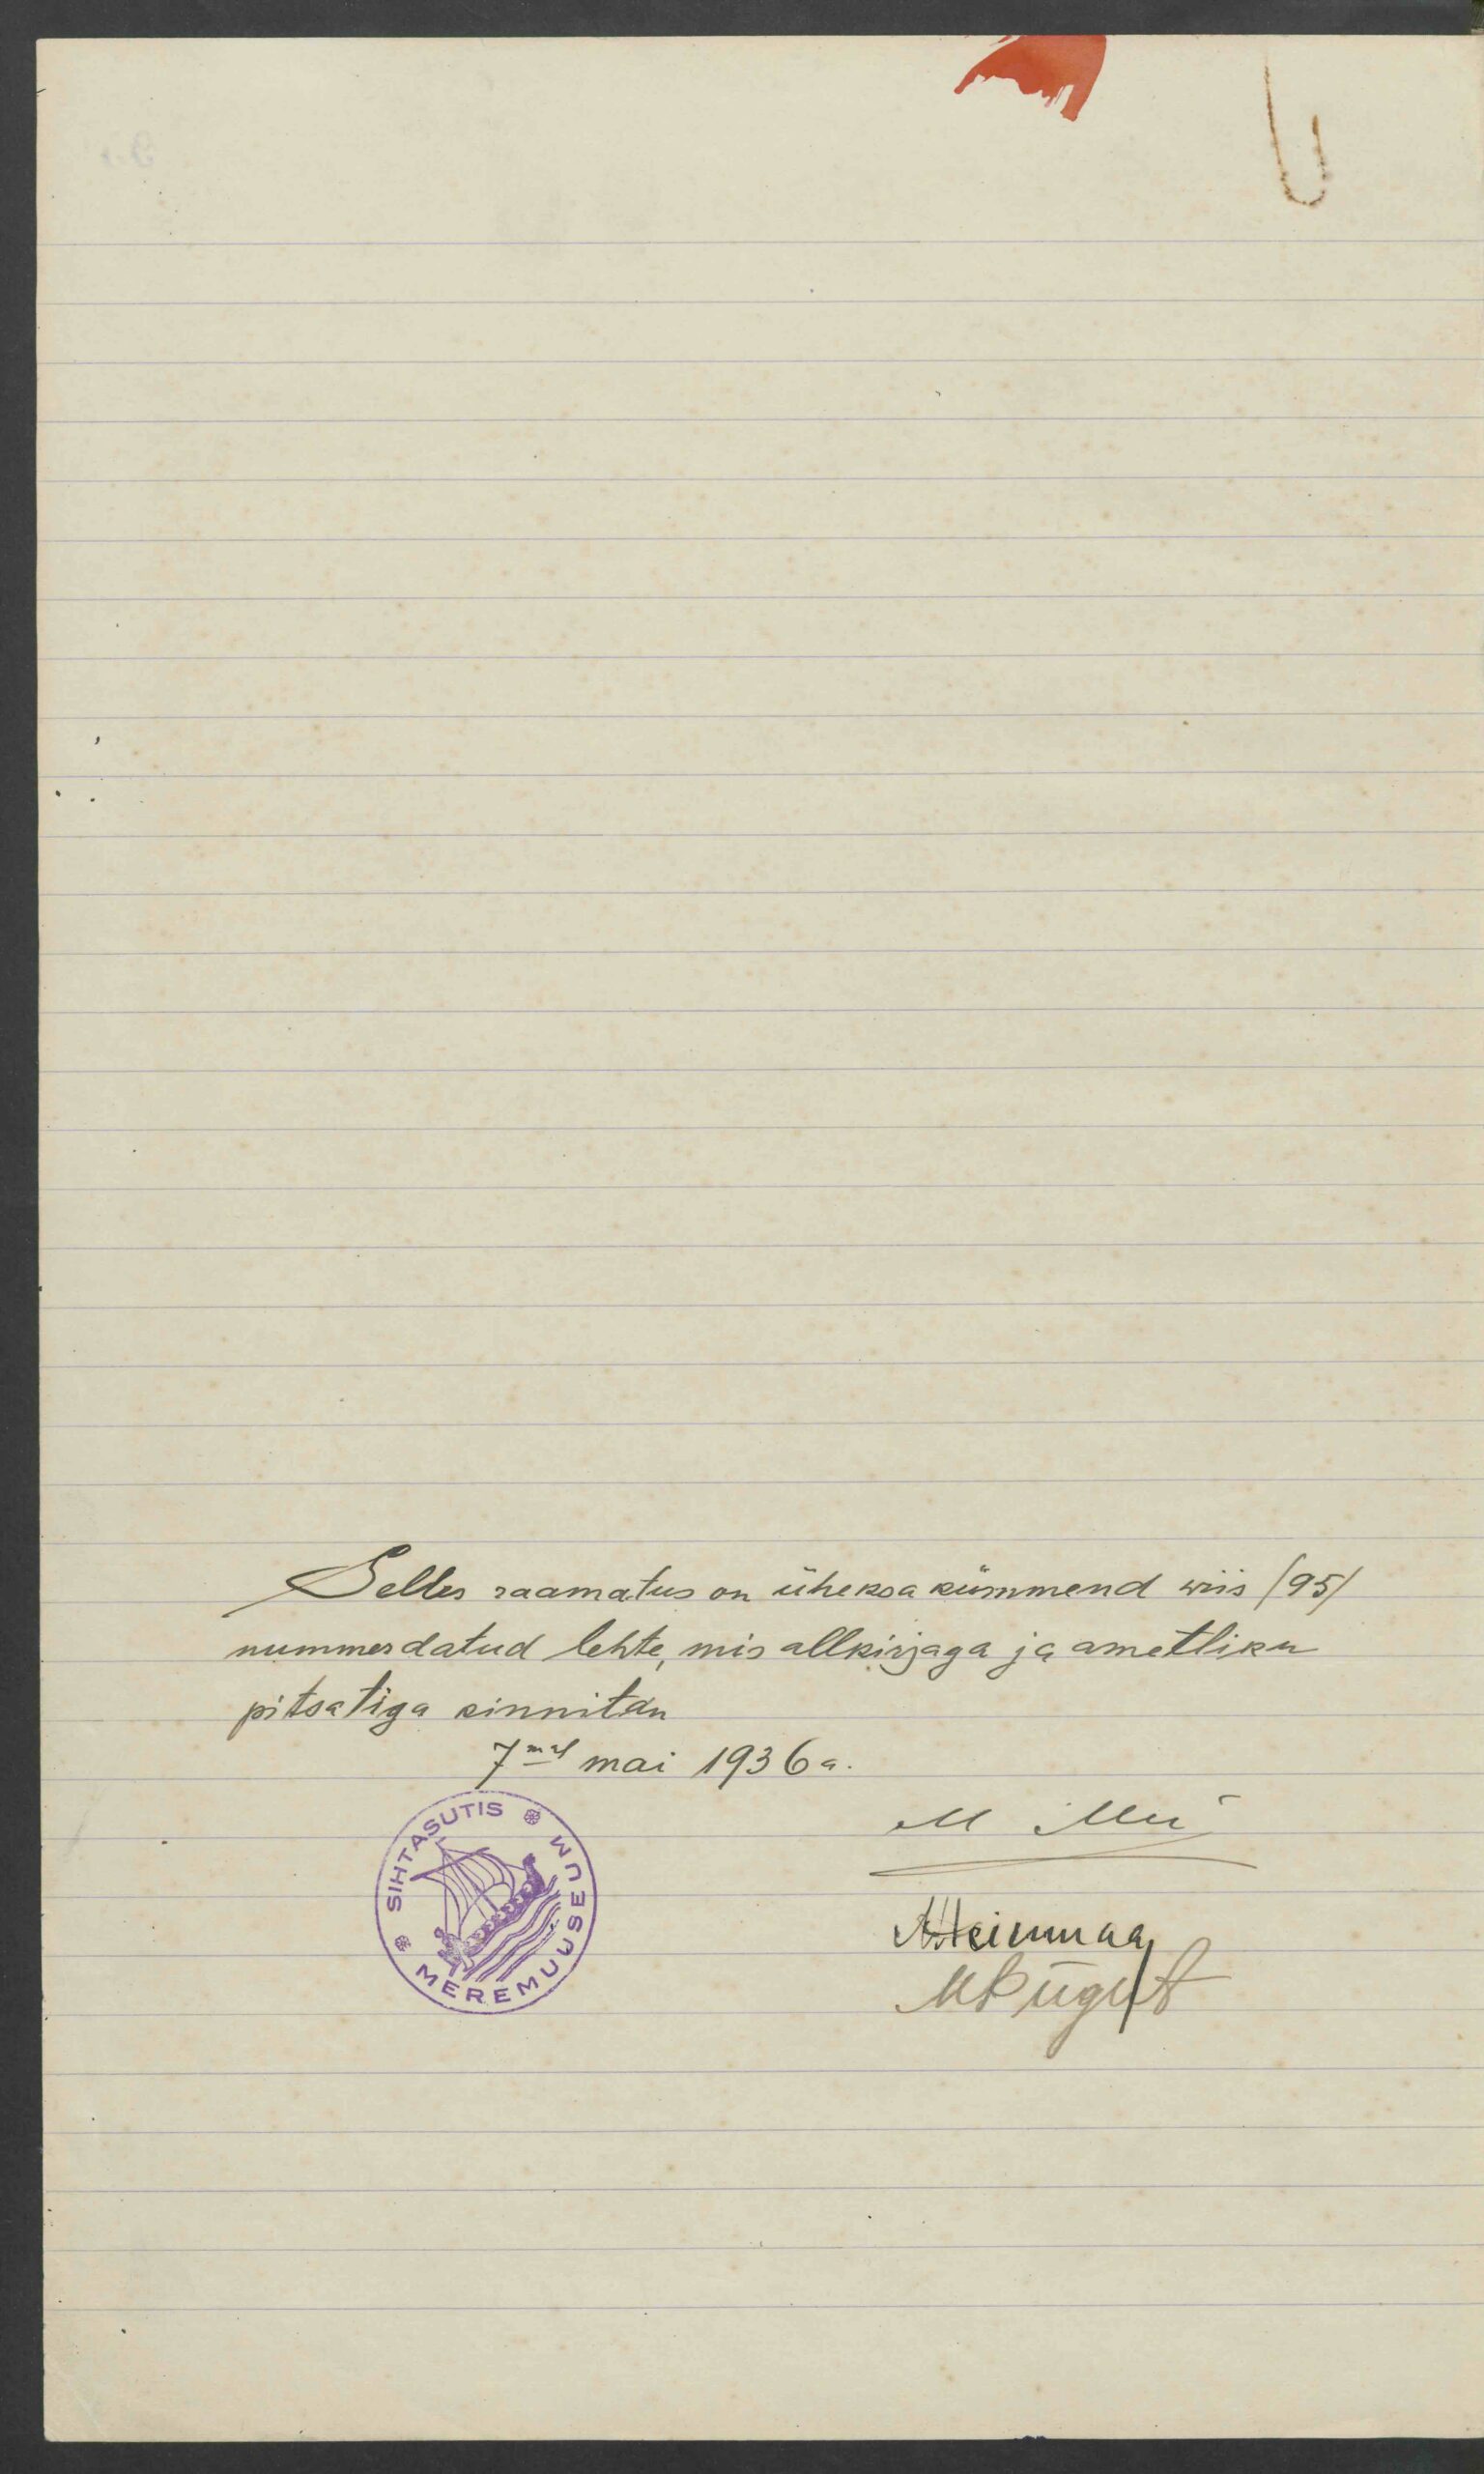 Selles raamatus on üheksa kümmend wiis /95/
nummerdatud lehte, mis allkirjaga ja ametliku
pitsatiga kinnitan
7mal mai 1936 a.
SIHTASUTIS
MEREMUUSEUM